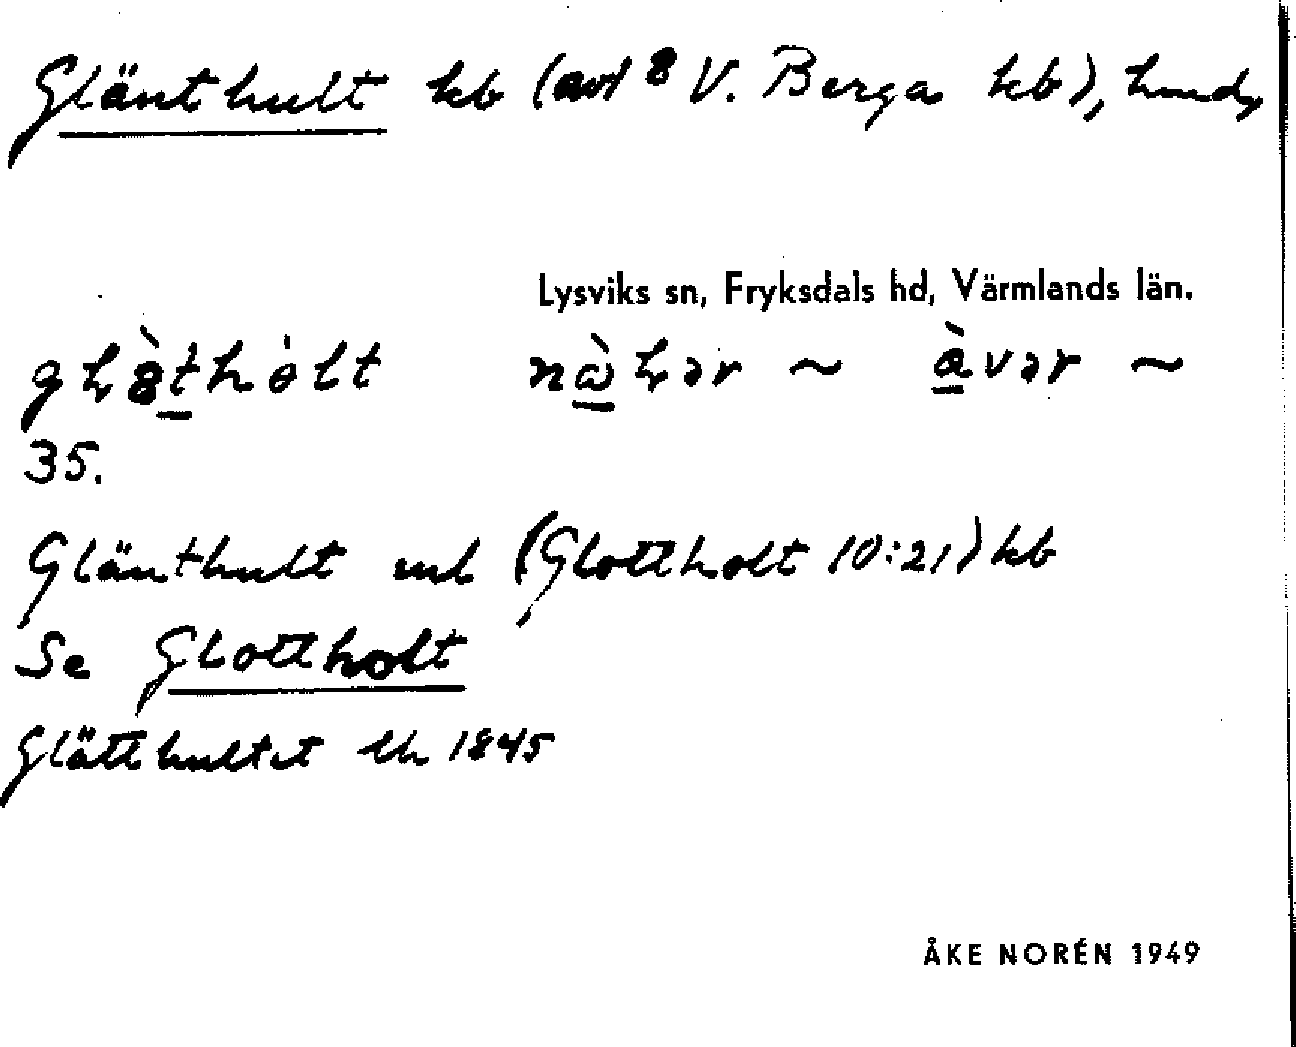 Glänthult kb (avs V. Berga kb), hmd,
Lysviks sn, Fryksdals hd, Värmlands län.
35.
Glänthult ml (Glottholt 10:21) kb
Se Glottholt
Glätthultet lh 1845
ÅKE NORÉN 1949